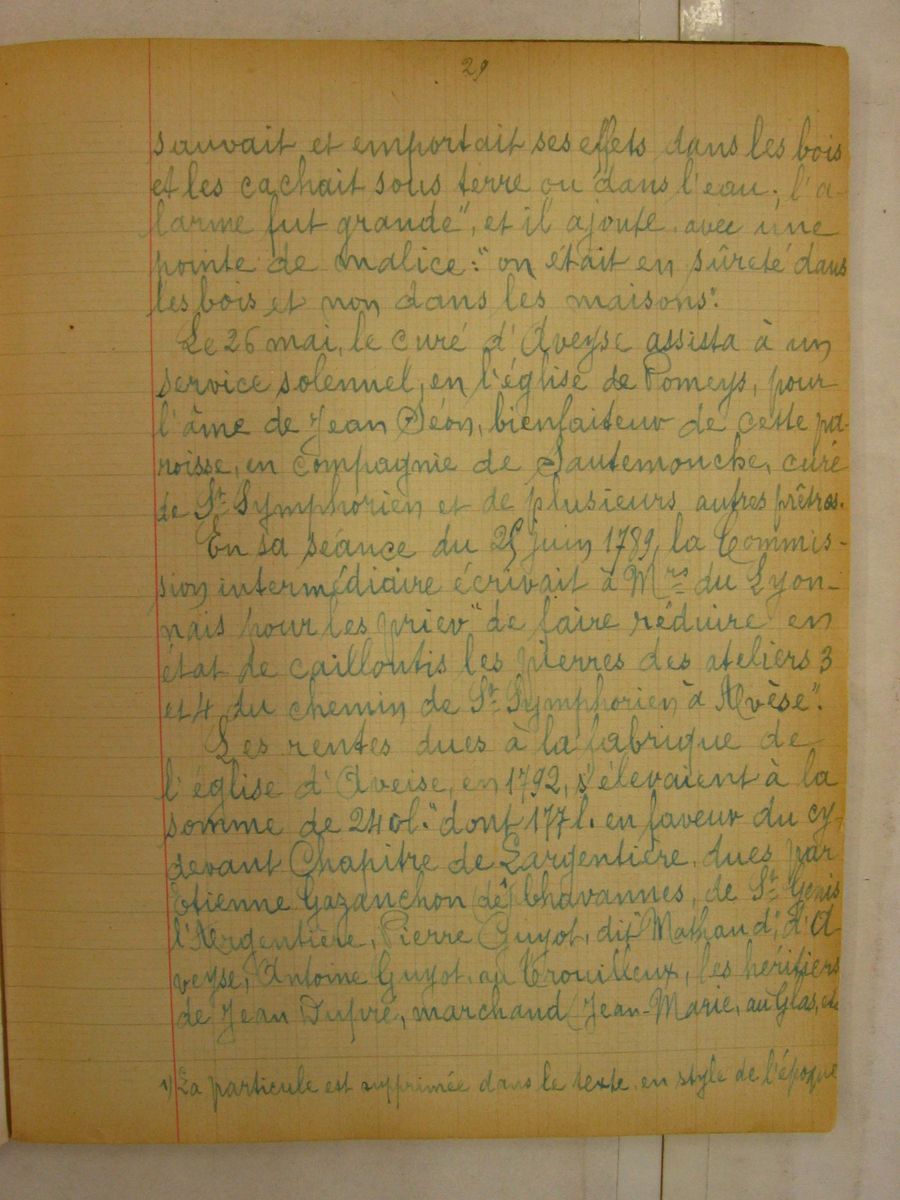 29
sauvait et emportait ses effets dans les bois
et les cachait sous terre ou dans l'eau; l'a-
larme fut grande", et il ajoute avec une
pointe de malice: "on était en sûreté dans
les bois et non dans les maisons".
Le 26 mai, le curé d'Aveyse assista à un
service solennel, en l'église de Pomeys, pour
l'âme de Jean Séon, bienfaiteur de cette pa-
roisse, en compagnie de Sautemouche, curé
de St Symphorien et de plusieurs autres prêtres.
En sa séance du 25 juin 1789, la Commis-
sion intermédiaire écrivait à Mrs du Lyon-
nais pour les prier "de faire réduire en
état de cailloutis les pierres des ateliers 3
et 4 du chemin de St Symphorien à Avèse".
Les rentes dues à la fabrique de
l'église d'Aveise, en 1792, s'élevaient à la
somme de 240l. dont 177 l. en faveur du cy-
devant Chapitre de Largentière, dues par
Etienne Gazanchon (de) Chavannes, de St Genis
l'Argentière, Pierre Guyot, dit "Mathaud", d'A-
veyse, Antoine Guyot, au Trouilleux, les héritiers
de Jean Dupré, marchand, Jean-Marie, au Glas, et
1) La particule est supprimée dans le texte, en style de l'époque